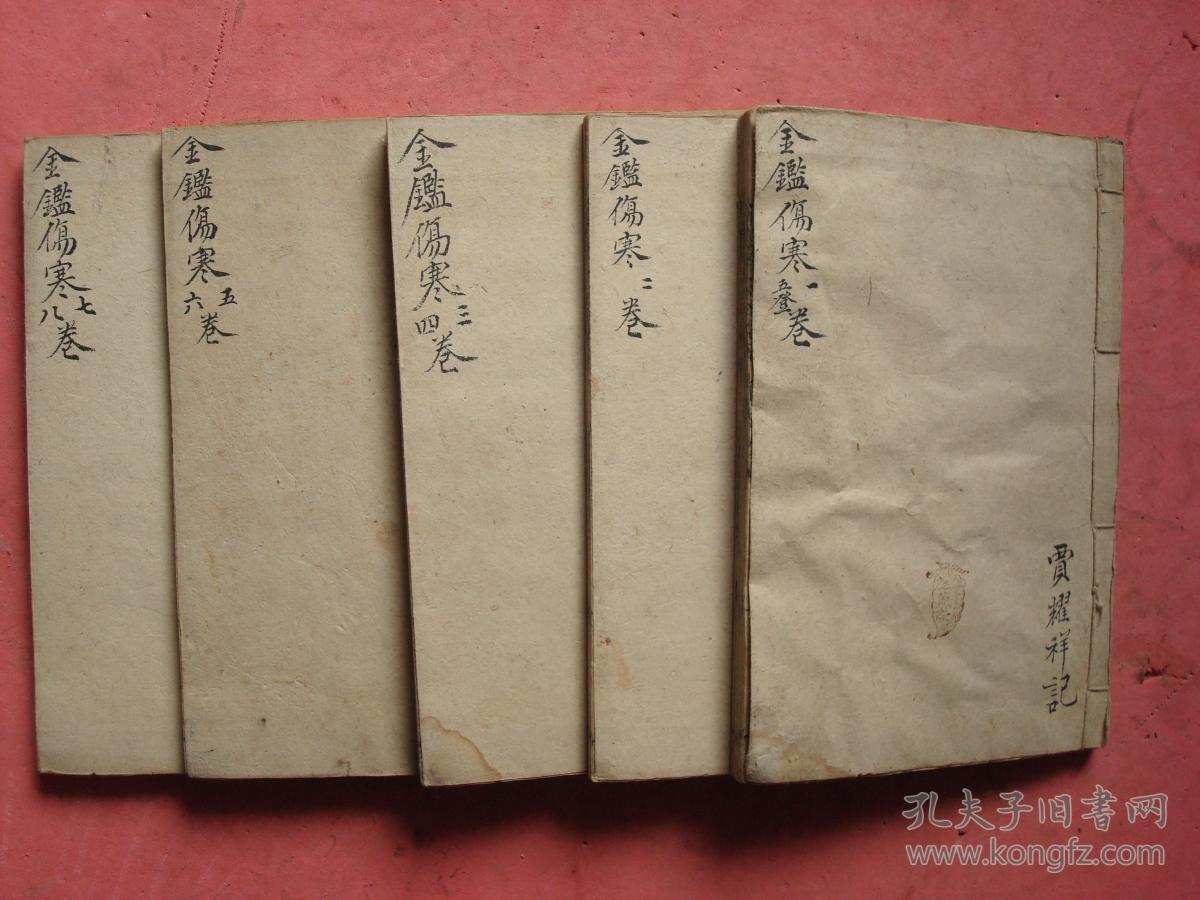 金鑑傷寒一卷
五登
賈耀祥記
金鑑傷寒二卷
金鑑傷寒三四卷
金鑑傷寒五六卷
金鑑傷寒七八卷
孔夫子旧书网
www.kongfz.com